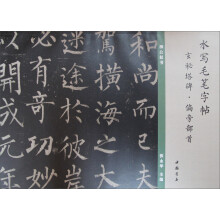 水写毛笔字帖
玄秘塔碑·偏旁部首
和尚而已夫
駕橫海之大
途於彼岸
必有奇功妙